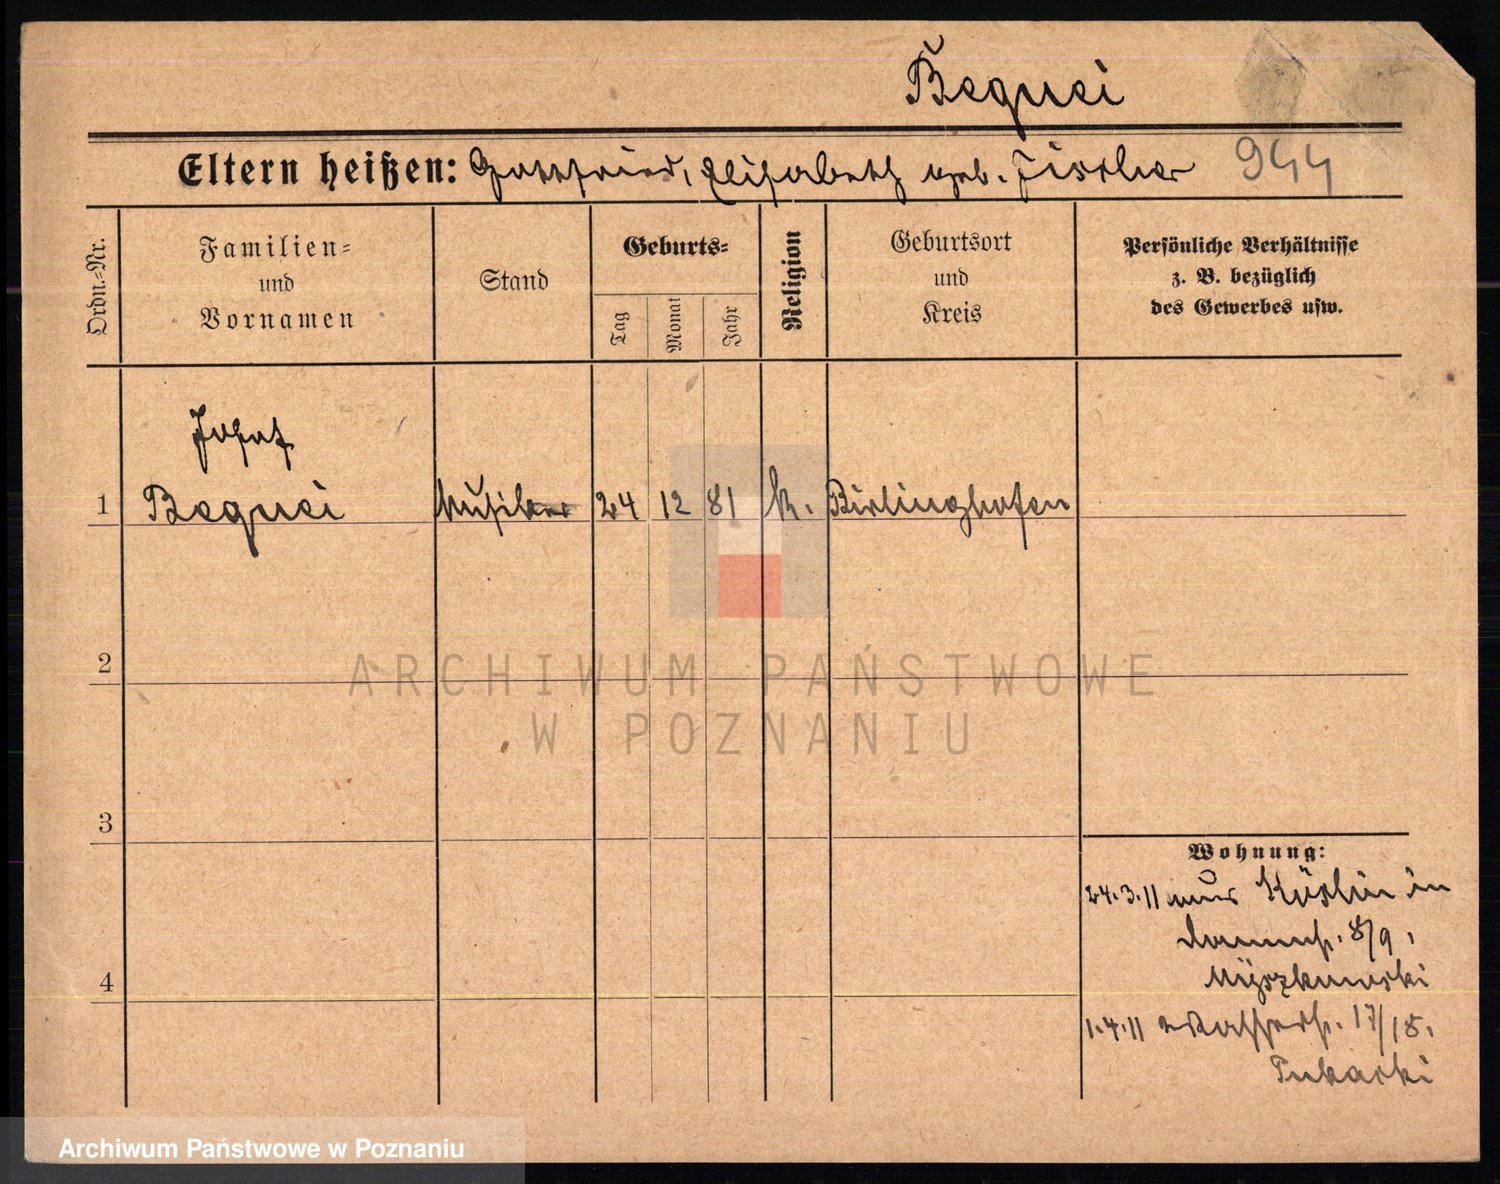 Bequei
Eltern heißen: Gottfried, Elisabeth geb. Fischer 944
Ordn.-Nr.
Familien-
und
Vornamen
Stand
Geburts-
Tag
Monat
Jahr
Religion
Geburtsort
und
Kreis
Persönliche Verhältnisse
z. B. bezüglich
des Gewerbes usw.
Josef
1 Bequei Musiker 24 12 81 k. Birlinghofen
2
3
4
Wohnung:
24.3.11 aus Köslin in
8/9,
Myszkowski
1.4.11 Wasserstr. 17/18.
Tukarski
ARCHIWUM PAŃSTWOWE
W POZNANIU
Archiwum Państwowe w Poznaniu